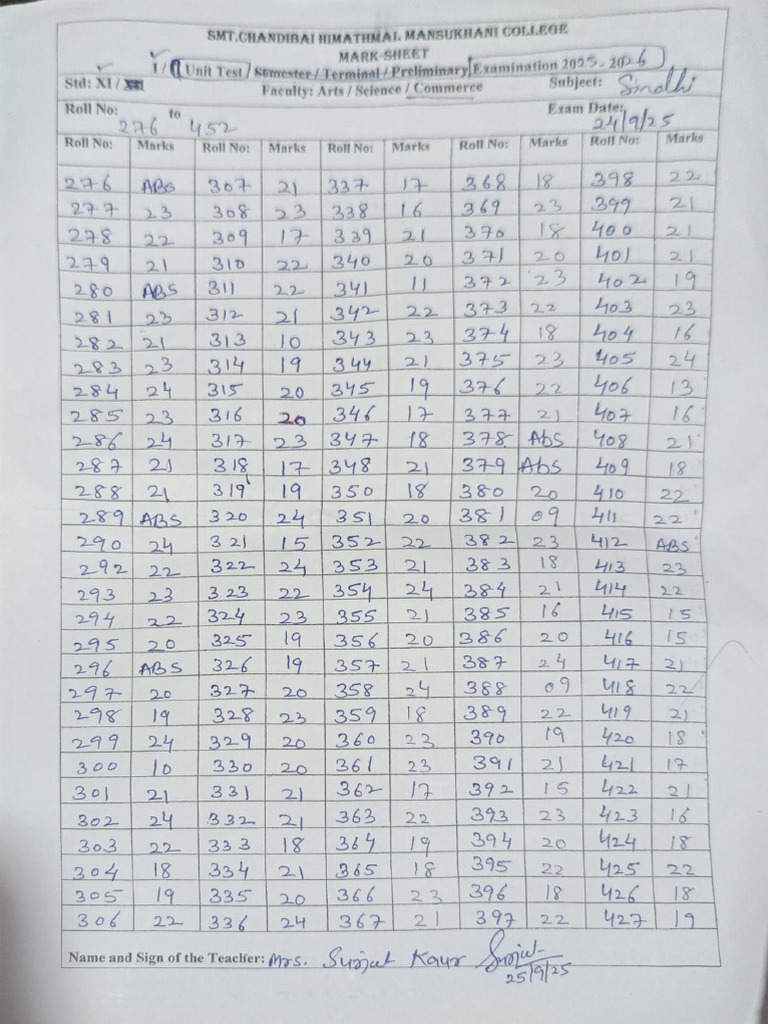 SMT.CHANDIBAI HIMATHMAL MANSUKHANI COLLEGE
MARK-SHEET
I / Unit Test / Semester / Terminal / Preliminary Examination 2025 - 2026
Std: XI / Subject: Sindhi
Faculty: Arts / Science / Commerce
Roll No: 276 to 452 Exam Date: 24/9/25
Roll No: Marks Roll No: Marks Roll No: Marks Roll No: Marks Roll No: Marks
276 ABS 307 21 337 17 368 18 398 22
277 23 308 23 338 16 369 23 399 21
278 22 309 17 339 21 370 18 400 21
279 21 310 22 340 20 371 20 401 21
280 ABS 311 22 341 11 372 23 402 19
281 23 312 21 342 22 373 22 403 23
282 21 313 10 343 23 374 18 404 16
283 23 314 19 344 21 375 23 405 24
284 24 315 20 345 19 376 22 406 13
285 23 316 20 346 17 377 21 407 16
286 24 317 23 347 18 378 Abs 408 21
287 21 318 17 348 21 379 Abs 409 18
288 21 319 19 350 18 380 20 410 22
289 ABS 320 24 351 20 381 09 411 22
290 24 321 15 352 22 382 23 412 ABS
292 22 322 24 353 21 383 18 413 23
293 23 323 22 354 24 384 21 414 22
294 22 324 23 355 21 385 16 415 15
295 20 325 19 356 20 386 20 416 15
296 ABS 326 19 357 21 387 24 417 21
297 20 327 20 358 24 388 09 418 22
298 19 328 23 359 18 389 22 419 21
299 24 329 20 360 23 390 19 420 18
300 10 330 20 361 23 391 21 421 17
301 21 331 21 362 17 392 15 422 21
302 24 332 21 363 22 393 23 423 16
303 22 333 18 364 19 394 20 424 18
304 18 334 21 365 18 395 22 425 22
305 19 335 20 366 23 396 18 426 18
306 22 336 24 367 21 397 22 427 19
Name and Sign of the Teacher: Mrs. Surjut Kaur
25/9/25